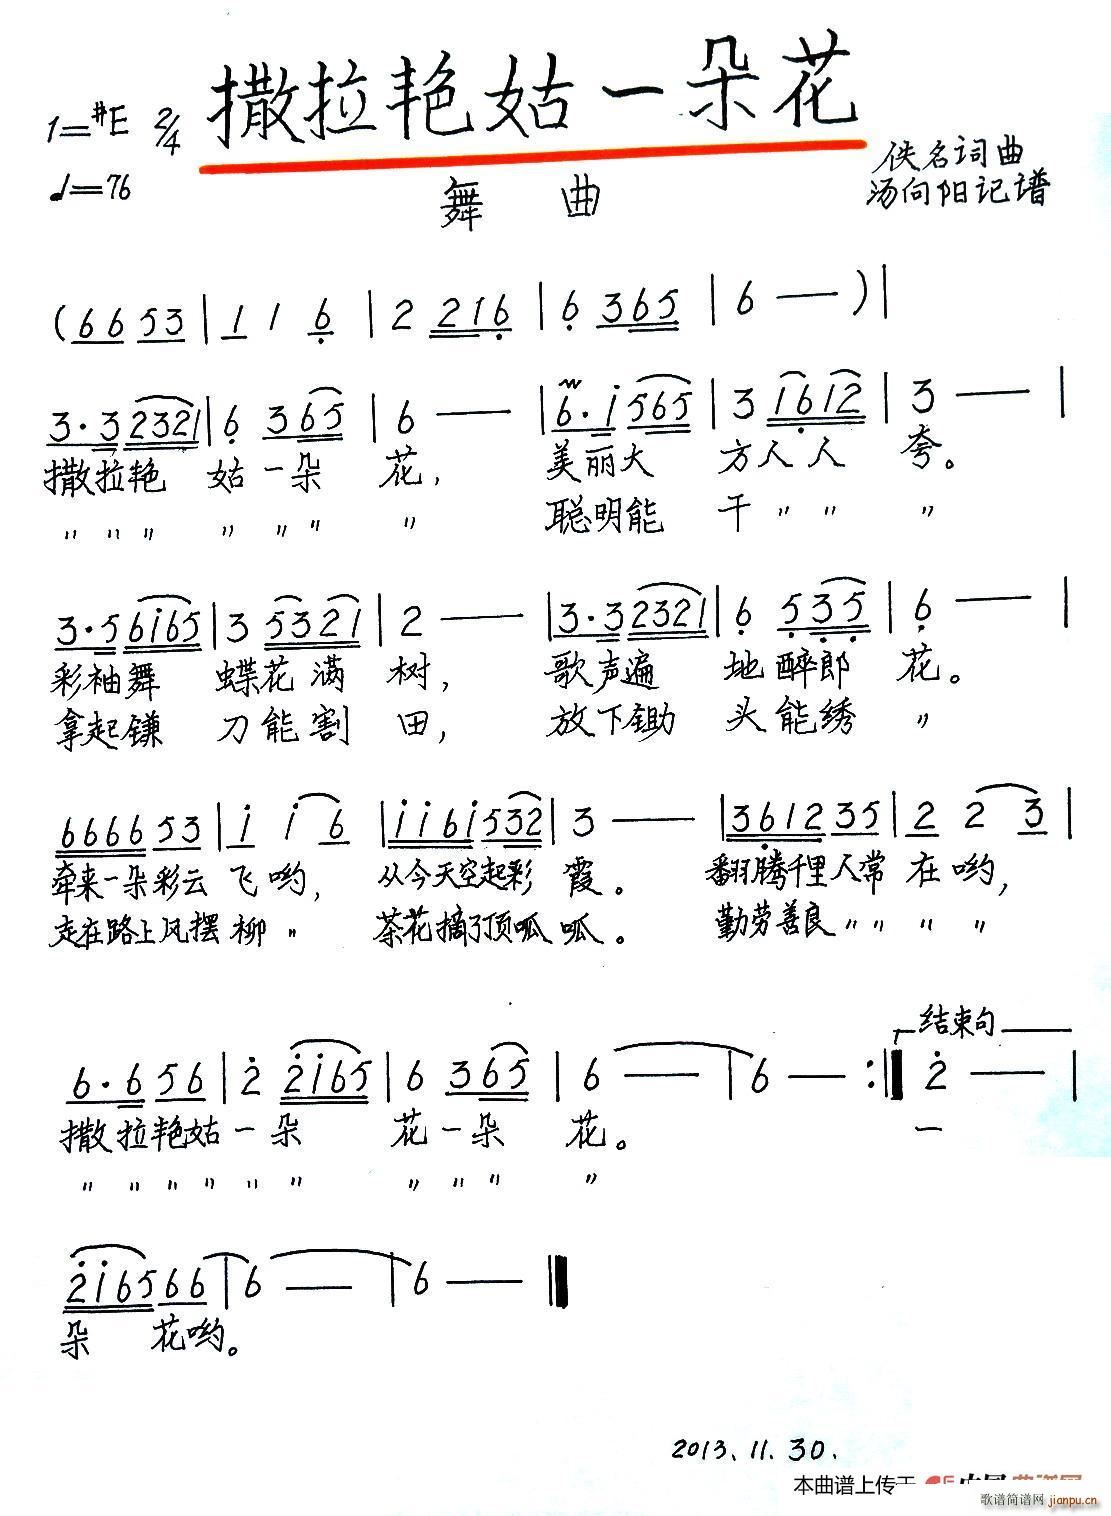 撒拉艳姑一朵花
1=#E 2/4
♩=76
舞 曲
佚名词曲
汤向阳记谱
(6 6 5 3 | 1 1 6̣ | 2 2 1 6̣ | 6̣ 3 6 5 | 6 — ) |
3·3 2 3 2 1 | 6̣ 3 6 5 | 6 — | 6̣·i 5 6 5 | 3 1 6̣ 1 2 | 3 — |
撒拉艳 姑一朵 花, 美丽大 方人人 夸。
〃 〃 〃 〃 〃 〃 〃 聪明能 干 〃 〃 〃
3·5 6 i 6 5 | 3 5 3 2 1 | 2 — | 3·3 2 3 2 1 | 6̣ 5̣ 3̣ 5̣ | 6̣ — |
彩袖舞 蝶花满 树, 歌声遍 地醉郎 花。
拿起镰 刀能割 田, 放下锄 头能绣 〃
6 6 6 6 5 3 | i i 6 | i i 6 i 5 3 2 | 3 — | 3 6̣ 1 2 3 5 | 2 2 3 |
牵来一朵彩云 飞哟, 从今天空起彩 霞。 翻腾千里人常 在哟,
走在路上风摆 柳 〃 茶花摘了顶呱 呱。 勤劳善良 〃 〃 〃 〃
结束句
6·6 5 6 | 2̇ 2̇ i 6 5 | 6 3 6 5 | 6 — | 6 — :| 2̇ — |
撒拉艳姑一朵 花一朵 花。 一
〃 〃 〃 〃 〃 〃 〃 〃 〃 〃
2̇ i 6 5 6 6 | 6 — | 6 — ‖
朵 花哟。
2013.11.30.
本曲谱上传于
歌谱简谱网 jianpu.cn